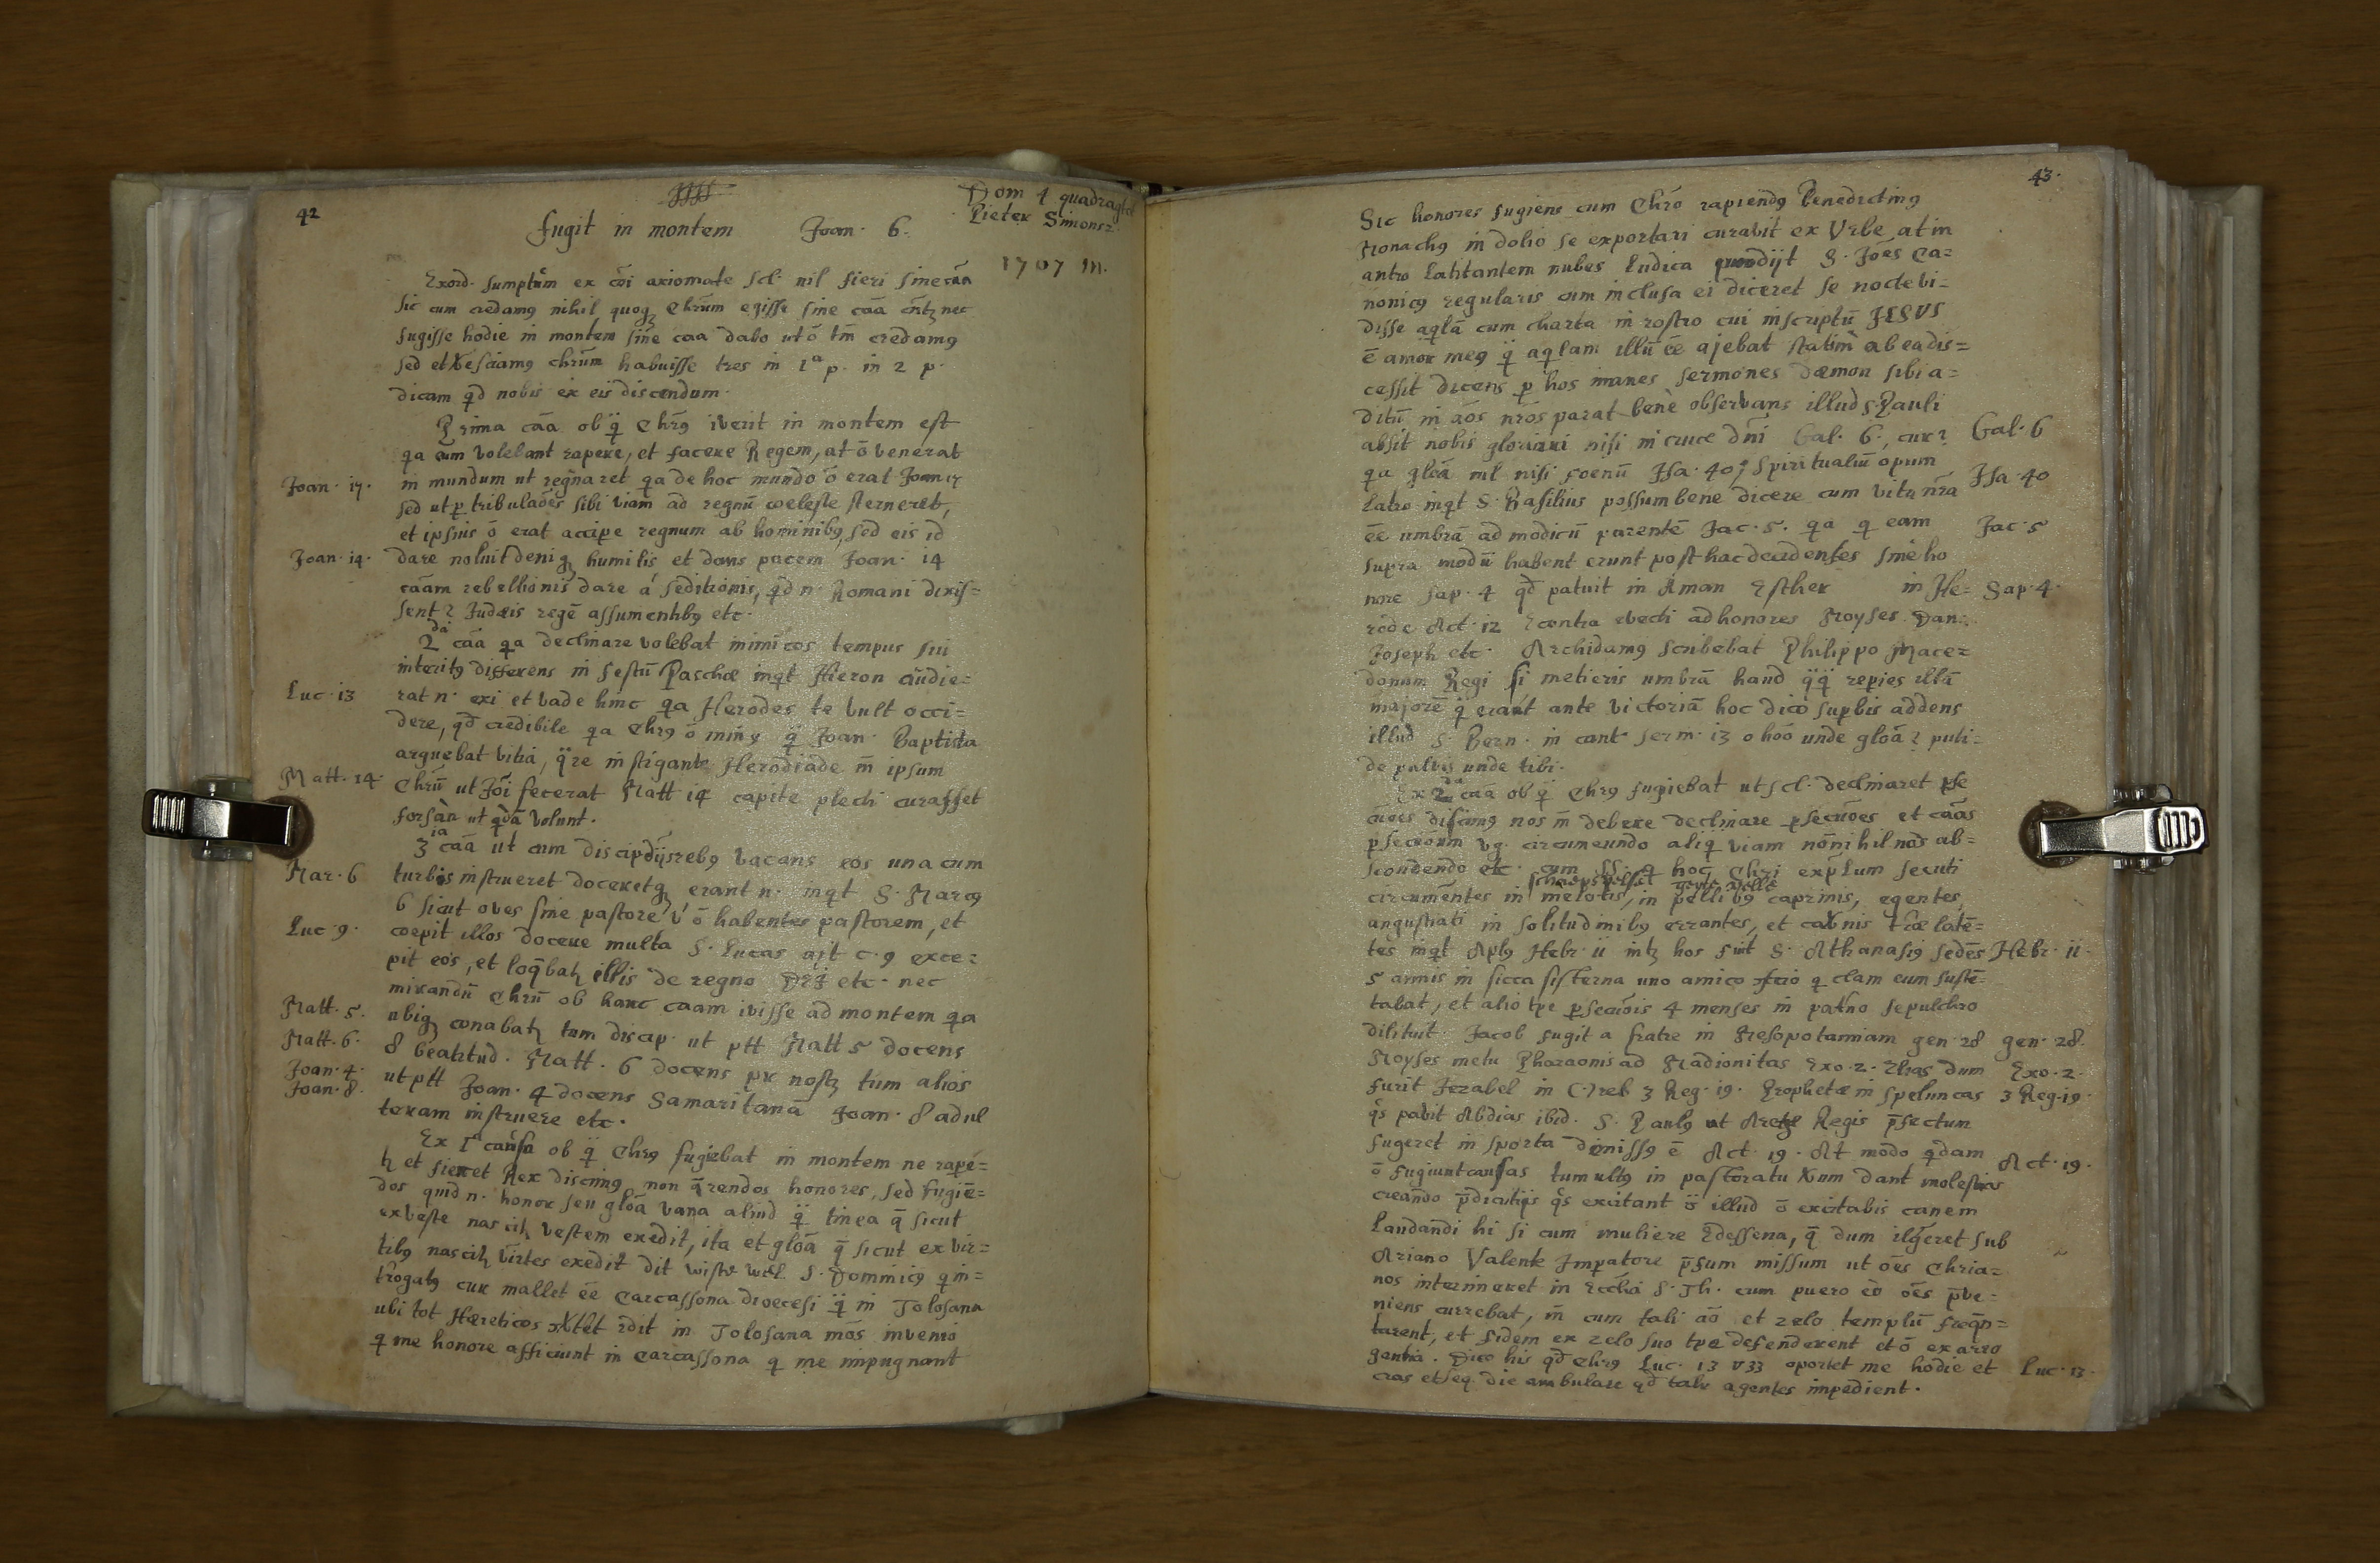 42
Dom 4 quadrag
Pieter Simonsz
fugit in montem Joan. 6.
1707 m.
Exord. sumptum ex cōi axiomate scl. nil fieri sine cāā
sic cum credamꝰ nihil quoqꝫ Chrūm egisse sine cāā nec
fugisse hodie in montem sine caa dabo ut ō tm̄ credamꝰ
sed et sciamꝰ chrūm habuisse tres in 1ᵃ p. in 2 p.
dicam qd nobis ex eis discendum.
Prima cāā ob q̄ Chrꝰ iverit in montem est
qa eum volebant rapere, et facere Regem, at ō venerat
Joan. 17.
in mundum ut regnaret qa de hoc mundo ō erat Joan 17
sed ut p tribulaōes sibi viam ad regnū coeleste sterneret,
et ipsius ō erat accipe regnum ab hominibꝰ, sed eis id
Joan. 14.
dare noluit deniqꝫ humilis et dans pacem Joan. 14
cāam rebellionis dare á seditionis, qd n. Romani dixis=
sent? Judæis regē assumentibꝰ etc.
2da cāā qa declinare volebat inimicos tempus sui
interitꝰ differens in festū Paschæ inqt Hieron audie=
Luc. 13
rat n. exi et vade hinc qa Herodes te vult occi=
dere, qd credibile qa Chrꝰ ō minꝰ q̄ Joan. Baptista
arguebat vitia, q̄re instigante Herodiade m̄ ipsum
Matt. 14.
Chrū ut Jōi fecerat Matt 14 capite plecti curasset
forsàn ut qdā volunt.
3ia cāā ut cum discip rebꝰ vacans eos una cum
Mar. 6
turbis instrueret doceretqꝫ erant n. inqt S. Marcꝰ
6 sicut oves sine pastore v ō habentes pastorem, et
Luc. 9.
coepit illos docere multa S. Lucas ait c. 9 exce=
pit eos, et loqbatꝛ illis de regno Dei etc. nec
mirandū Chrū ob hanc caam ivisse ad montem qa
Matt. 5.
ubiqꝫ conabatꝛ tum discip. ut ptt Matt 5 docens
Matt. 6.
8 beatitud. Matt. 6 docens pr nostꝫ tum alios
Joan. 4.
ut ptt Joan. 4 docens Samaritanā Joan. 8 adul
Joan. 8.
teram instruere etc.
Ex 1ᵃ causa ob q̄ Chrꝰ fugiebat in montem ne rape=
tꝛ et fieret Rex discimꝰ non q̄rendos honores, sed fugiē=
dos quid n. honor seu gloā vana aliud q̄ tinea q̄ sicut
ex veste nascitꝛ vestem exedit, ita et gloā q̄ sicut ex vir=
tibꝰ nascitꝛ virtes exedit dit wist wel S. Dominicꝰ q in=
trogatꝰ cur mallet ēē Carcassona dioecesi q̄ in Tolosana
ubi tot Hæreticos rdit in Tolosana mōs invenio
q me honore afficiunt in Carcassona q me impugnant
43.
Sic honores fugiens cum Chrō rapiendꝰ Benedictinꝰ
Monachꝰ in dolio se exportari curavit ex Urbe, at in
antro latitantem nubes ludica S. Joēs Ca=
nonicꝰ regularis cum inclusa ei diceret se nocte vi=
disse aqlā cum charta in rostro cui inscriptū JESUS
ē amor meꝰ q̄ aqlam illū ēē ajebat statim ab ea dis=
cessit dicens p hos inanes sermones dæmon sibi a=
ditū in aōs nrōs parat bene observans illud S. Pauli
absit nobis gloriari nisi in cruce Dni Gal. 6., cur?
Gal. 6
qa gloā nil nisi foenū Isa. 40; Spiritualiū opum
Isa. 40
latro inqt S. Basilius possum bene dicere cum vita nrā
ēē umbrā ad modicū parentē Jac. 5. qa q eam
Jac. 5
supra modū habent erunt post hac decidentes sine ho
nore sap. 4 qd patuit in Aman Esther in He=
Sap. 4.
rode Act. 12 Econtra evecti ad honores Moyses Dan.
Joseph etc. Archidamꝰ scribebat Philippo Mace=
donum Regi si metieris umbrā haud q̄q̄ repies illā
majorē q̄ erat ante victoriā hoc dico supbis addens
illud S. Bern. in cant serm. 13 o hoō unde gloā? puti=
de pulvis unde tibi.
Ex 2da cāā ob q̄ Chrꝰ fugiebat ut scl. declinaret pse
cuōes discimꝰ nos m̄ debere declinare psecuōes et cāās
psecuōum vg. circumeundo aliq viam nonnihil nos ab=
scondendo etc. cum SS. q hoc Chri explum secuti
circumentes in melotis, in pellibꝰ caprinis, egentes,
angustiati in solitudinibꝰ errantes, et cavnis træ latē=
tes inqt Aplꝰ Hebr. 11 intꝫ hos fuit S. Athanasiꝰ sedēs
Hebr. 11.
5 annis in sicca sisterna uno amico q clam eum sustē=
tabat, et alio tpe psecuōis 4 menses in patno sepulchro
dilituit. Jacob fugit a fratre in Mesopotamiam gen. 28
gen. 28.
Moyses metu Pharaonis ad Madionitas Exo. 2. Elias dum
Exo. 2.
furit Jezabel in Oreb 3 Reg. 19. Prophetæ in speluncas
3 Reg. 19.
qs pavit Abdias ibid. S. Paulꝰ ut Aretæ Regis p̄fectum
fugeret in sporta dimissꝰ ē Act. 19. At modo qdam
Act. 19.
ō fugiunt causas tumultꝰ in pastoratu dant molestias
creando p̄dicatijs qs excitant illud ō excitabis canem
Laudandi hi si cum muliere Edessena, q̄ dum sub
Ariano Valente Impatore p̄fum missum ut oēs Chria=
nos interimeret in Eccliā S. Th. cum puero eò oēs p̄ve=
niens currebat, m̄ cum tali aō et zelo templū freqn̄=
tarent, et fidem ex zelo suo tpe defenderent et ō ex arro
gantia. Dico his qd Chrꝰ Luc. 13 v 33 oportet me hodie et
Luc. 13.
cras et seq. die ambulare qd tale agentes impedient.